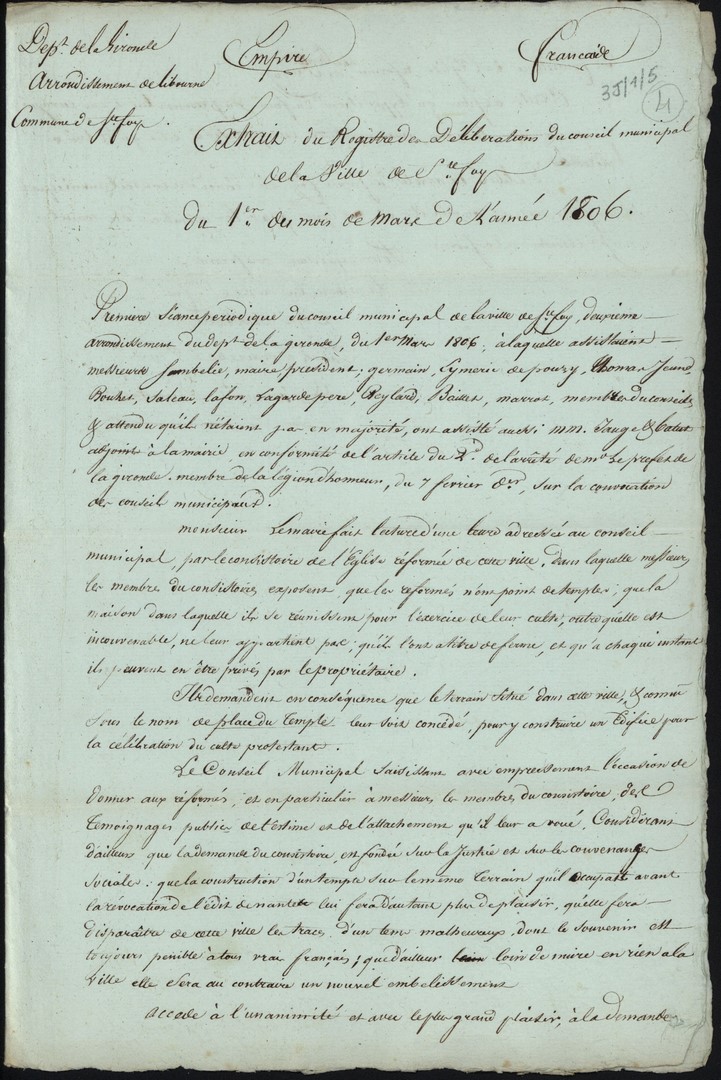 Dept. de la Gironde
Empire francaise
Arrondissement de libourne
3J/1/5
4
Commune de Ste foy.
Extrait du Registre des Déliberations du conseil municipal
de la Ville de Ste foy
Du 1er du mois de Mars de l'année 1806.
Premiere séance periodique du conseil municipal de la ville de Ste foy, deuxieme
arrondissement du dept de la gironde, du 1er Mars 1806, à laquelle assistaient
messieurs Jambelie, maire, president; germain, Eymeric de pouzy, thomas Jeune,
Bouhet, Saleau, lafon, Lagardepere, Reylard, Baillet, marrot, membres du conseil,
& attendu qu'ils n'étaient pas en majorité, ont assisté aussi mm. Jauge &
adjoints à la mairie, en conformité de l'article du 2d. de l'arrêté de mr. Le prefet de
la gironde, membre de la légion d'honneur, du 7 fevrier der, sur la convocation
des conseils municipaux.
monsieur Le maire fait lecture d'une lettre adressée au conseil
municipal, par le consistoire de l'Eglise réformée de cette ville. dans laquelle messieurs
les membres du consistoire, exposent, que les reformés n'ont point de temple; que la
maison dans laquelle ils se réunissent pour l'exercice de leur culte, outre qu'elle est
inconvenable, ne leur appartient pas; qu'ils l'ont à titre de ferme, et qu'a chaque instant
ils peuvent en être privés par le propriétaire.
Ils demandent en conséquence que le terrain situé dans cette ville, & connu
sous le nom de place du Temple leur soit concédé, pour y construire un Edifice pour
la célébration du culte protestant.
Le Conseil Municipal saisissant avec empressement l'occasion de
donner aux réformés, et en particulier à messieurs les membres du consistoire, des
Témoignages publics de l'estime et de l'attachement qu'il leur a voué, Considérant
d'ailleurs que la demande du consistoire, est fondée sur la Justice et sur les convenances
sociales: que la construction d'un temple sur le même terrain qu'il occupait avant
la révocation de l'édit de nantes lui fera d'autant plus de plaisir, qu'elle fera
Disparaître de cette ville les traces d'un tems malheureux dont le souvenir est
toujours penible à tous vrais français; que d'ailleurs loin de nuire en rien à la
ville elle sera au contraire un nouvel embelissement
accede à l'unanimité et avec le plus grand plaisir, à la demande